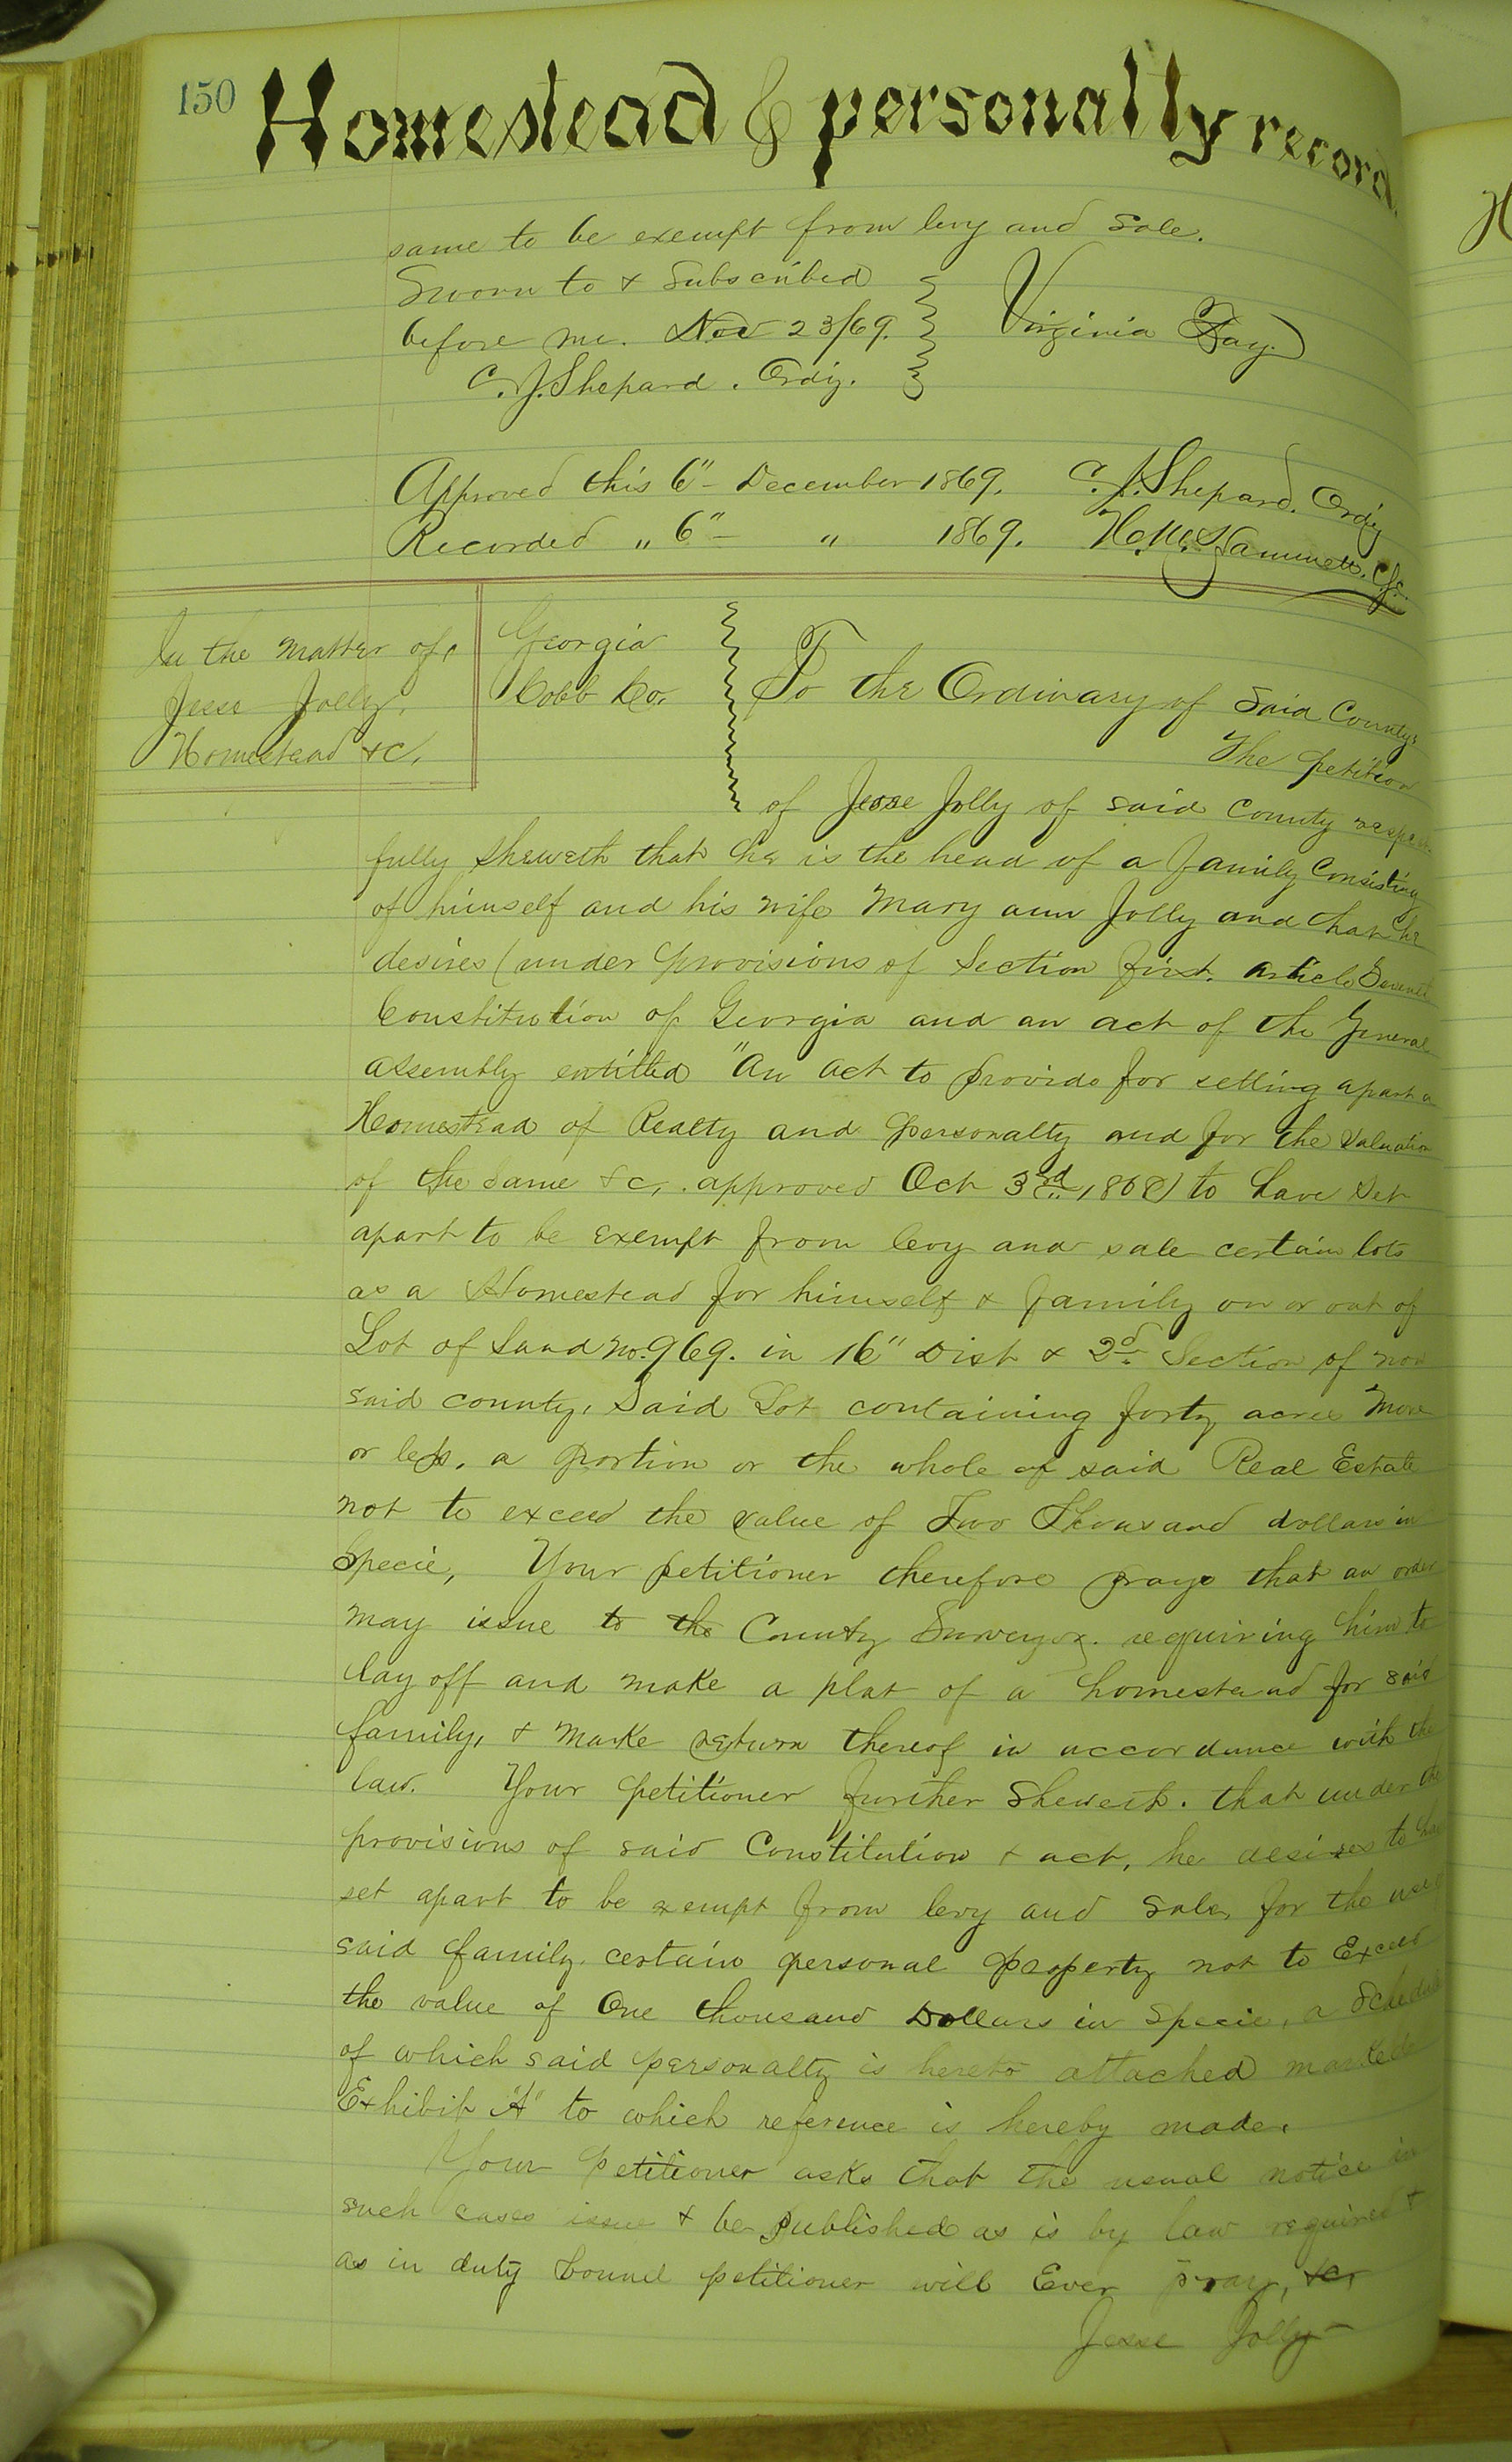 150
Homestead & personalty record.
same to be exempt from levy and Sale.
Sworn to & Subscribed
before me. Nov 23/69.
Virginia Fay.
C. J. Shepard. Ordy.
Approved this 6" December 1869. C. J. Shepard. Ordy
Recorded " 6" " 1869. Hammett. C.S.C.
In the matter of,
Jesse Jolly.
Homestead &c.
Georgia
Cobb Co.
To the Ordinary of Said County:
The petition
of Jesse Jolly of said County respect-
fully sheweth that he is the head of a family Consisting
of himself and his wife Mary ann Jolly and that he
desires (under provisions of Section first. article Seventh
Constitution of Georgia and an act of the General
assembly entitled "an act to provide for setting apart a
Homestead of Realty and personalty and for the valuation
of the same &c, approved Oct 3rd, 1868) to have set
apart to be exempt from levy and sale certain lots
as a Homestead for himself & family on or out of
Lot of Land No. 969. in 16" Dist & 2d. Section of now
said county, Said Lot containing forty acres More
or less, a portion or the whole of said Real Estate
not to exceed the value of Two Thousand dollars in
Specie, Your petitioner therefore prays that an order
may issue to the County Surveyor. requiring him to
lay off and make a plat of a homestead for said
family, & make return thereof in accordance with the
law. Your petitioner further sheweth. that under the
provisions of said Constitution & act, he desires to have
set apart to be exempt from levy and Sale, for the use of
said family. certain personal property not to Exceed
the value of One thousand Dollars in Specie, a Schedule
of which said personalty is hereto attached marked
Exhibit "A" to which reference is hereby made.
Your petitioner asks that the usual notice in
such cases issue & be published as is by law required &
as in duty bound petitioner will Ever pray, &c,
Jesse Jolly